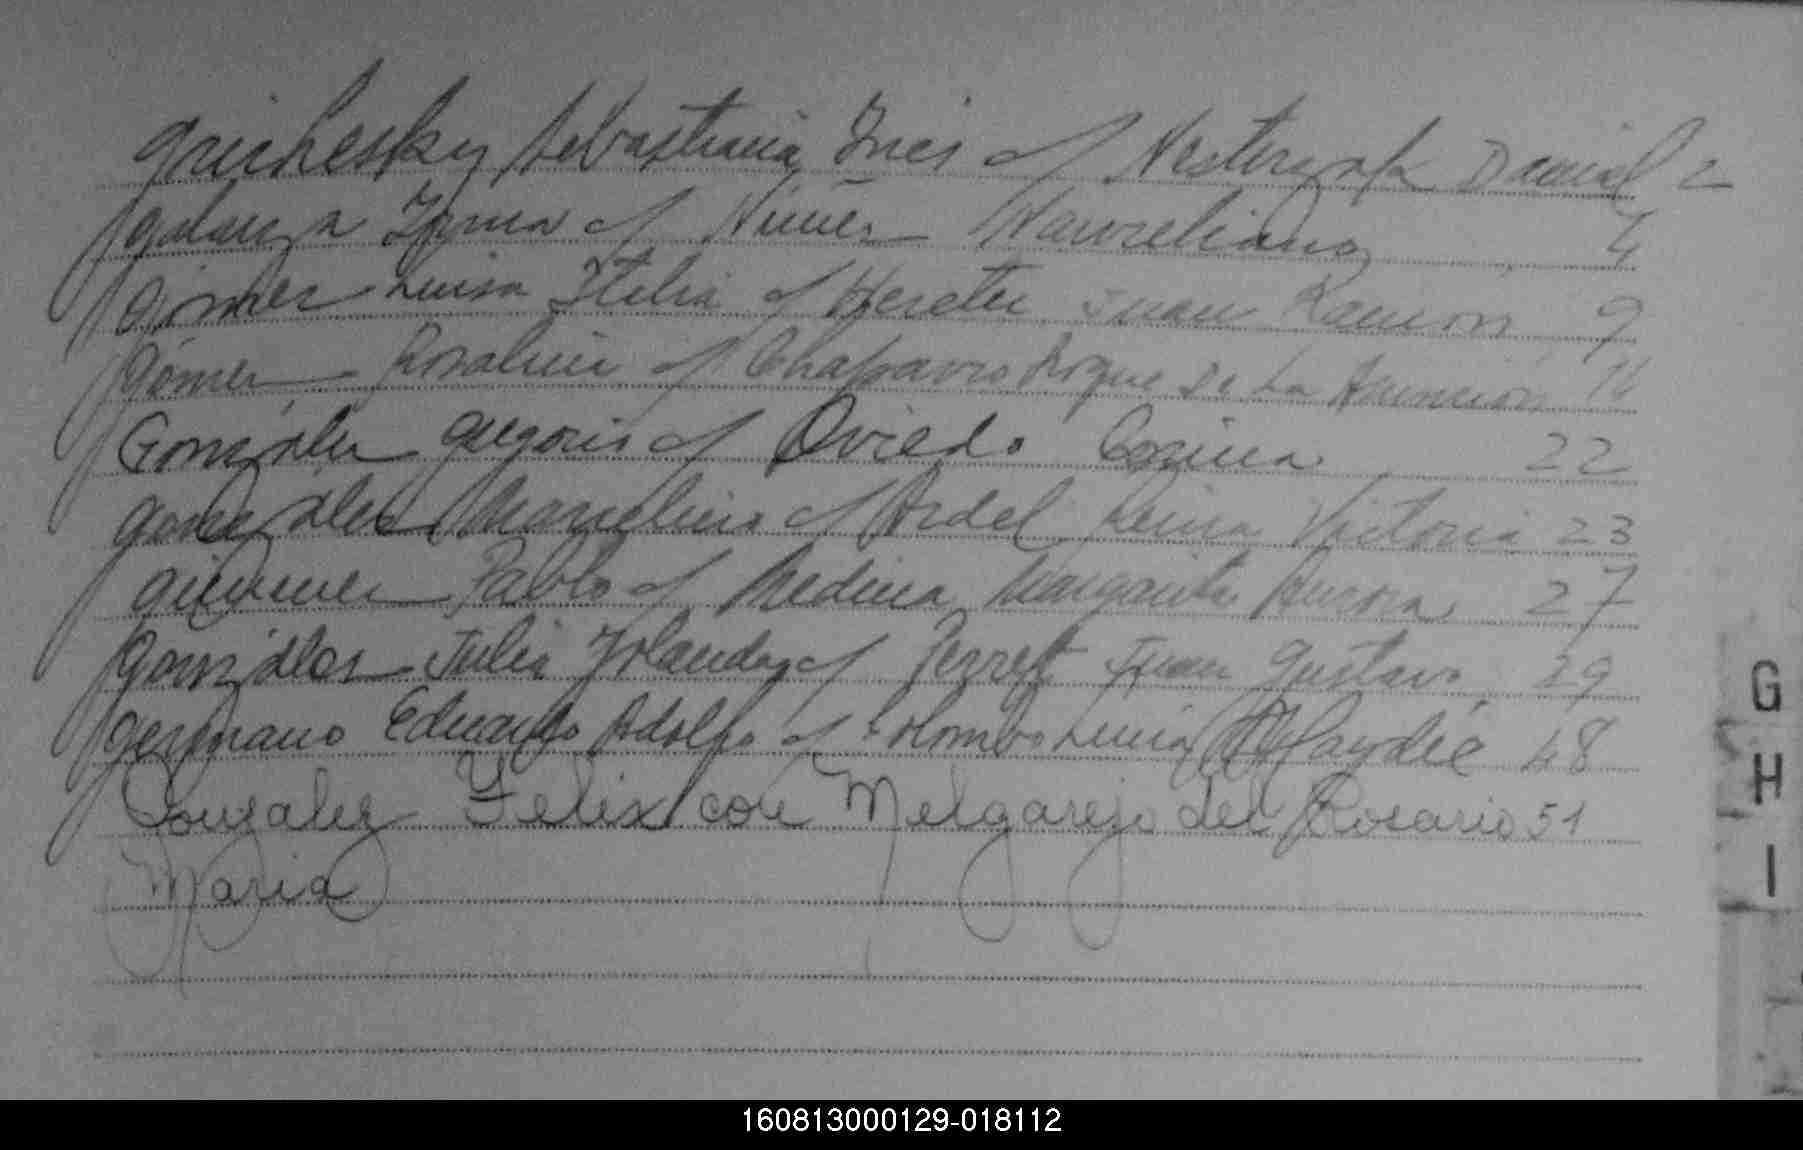 Grichesky Sebastiana Ines c/ Nesterzak Daniel 2
Galarza Irma c/ Núñez Maureliano 4
Gómez Luisa Itelia c/ Heretu Juan Ramón 9
Gómez Rosalina c/ Chaparro Roque De La Asunción 14
González Gregorio c/ Oviedo Corina 22
González Marcelino c/ Ardel Luisa Victoria 23
Giménez Pablo c/ Medina Margarita Aurora 27
González Julia Yolanda c/ Perret Juan Gustavo 29
Germano Eduardo Adolfo c/ Colombo Lucía Haydée 48
Gonzalez Felix con Melgarejo del Rosario 51
Maria
G
H
I
160813000129-018112